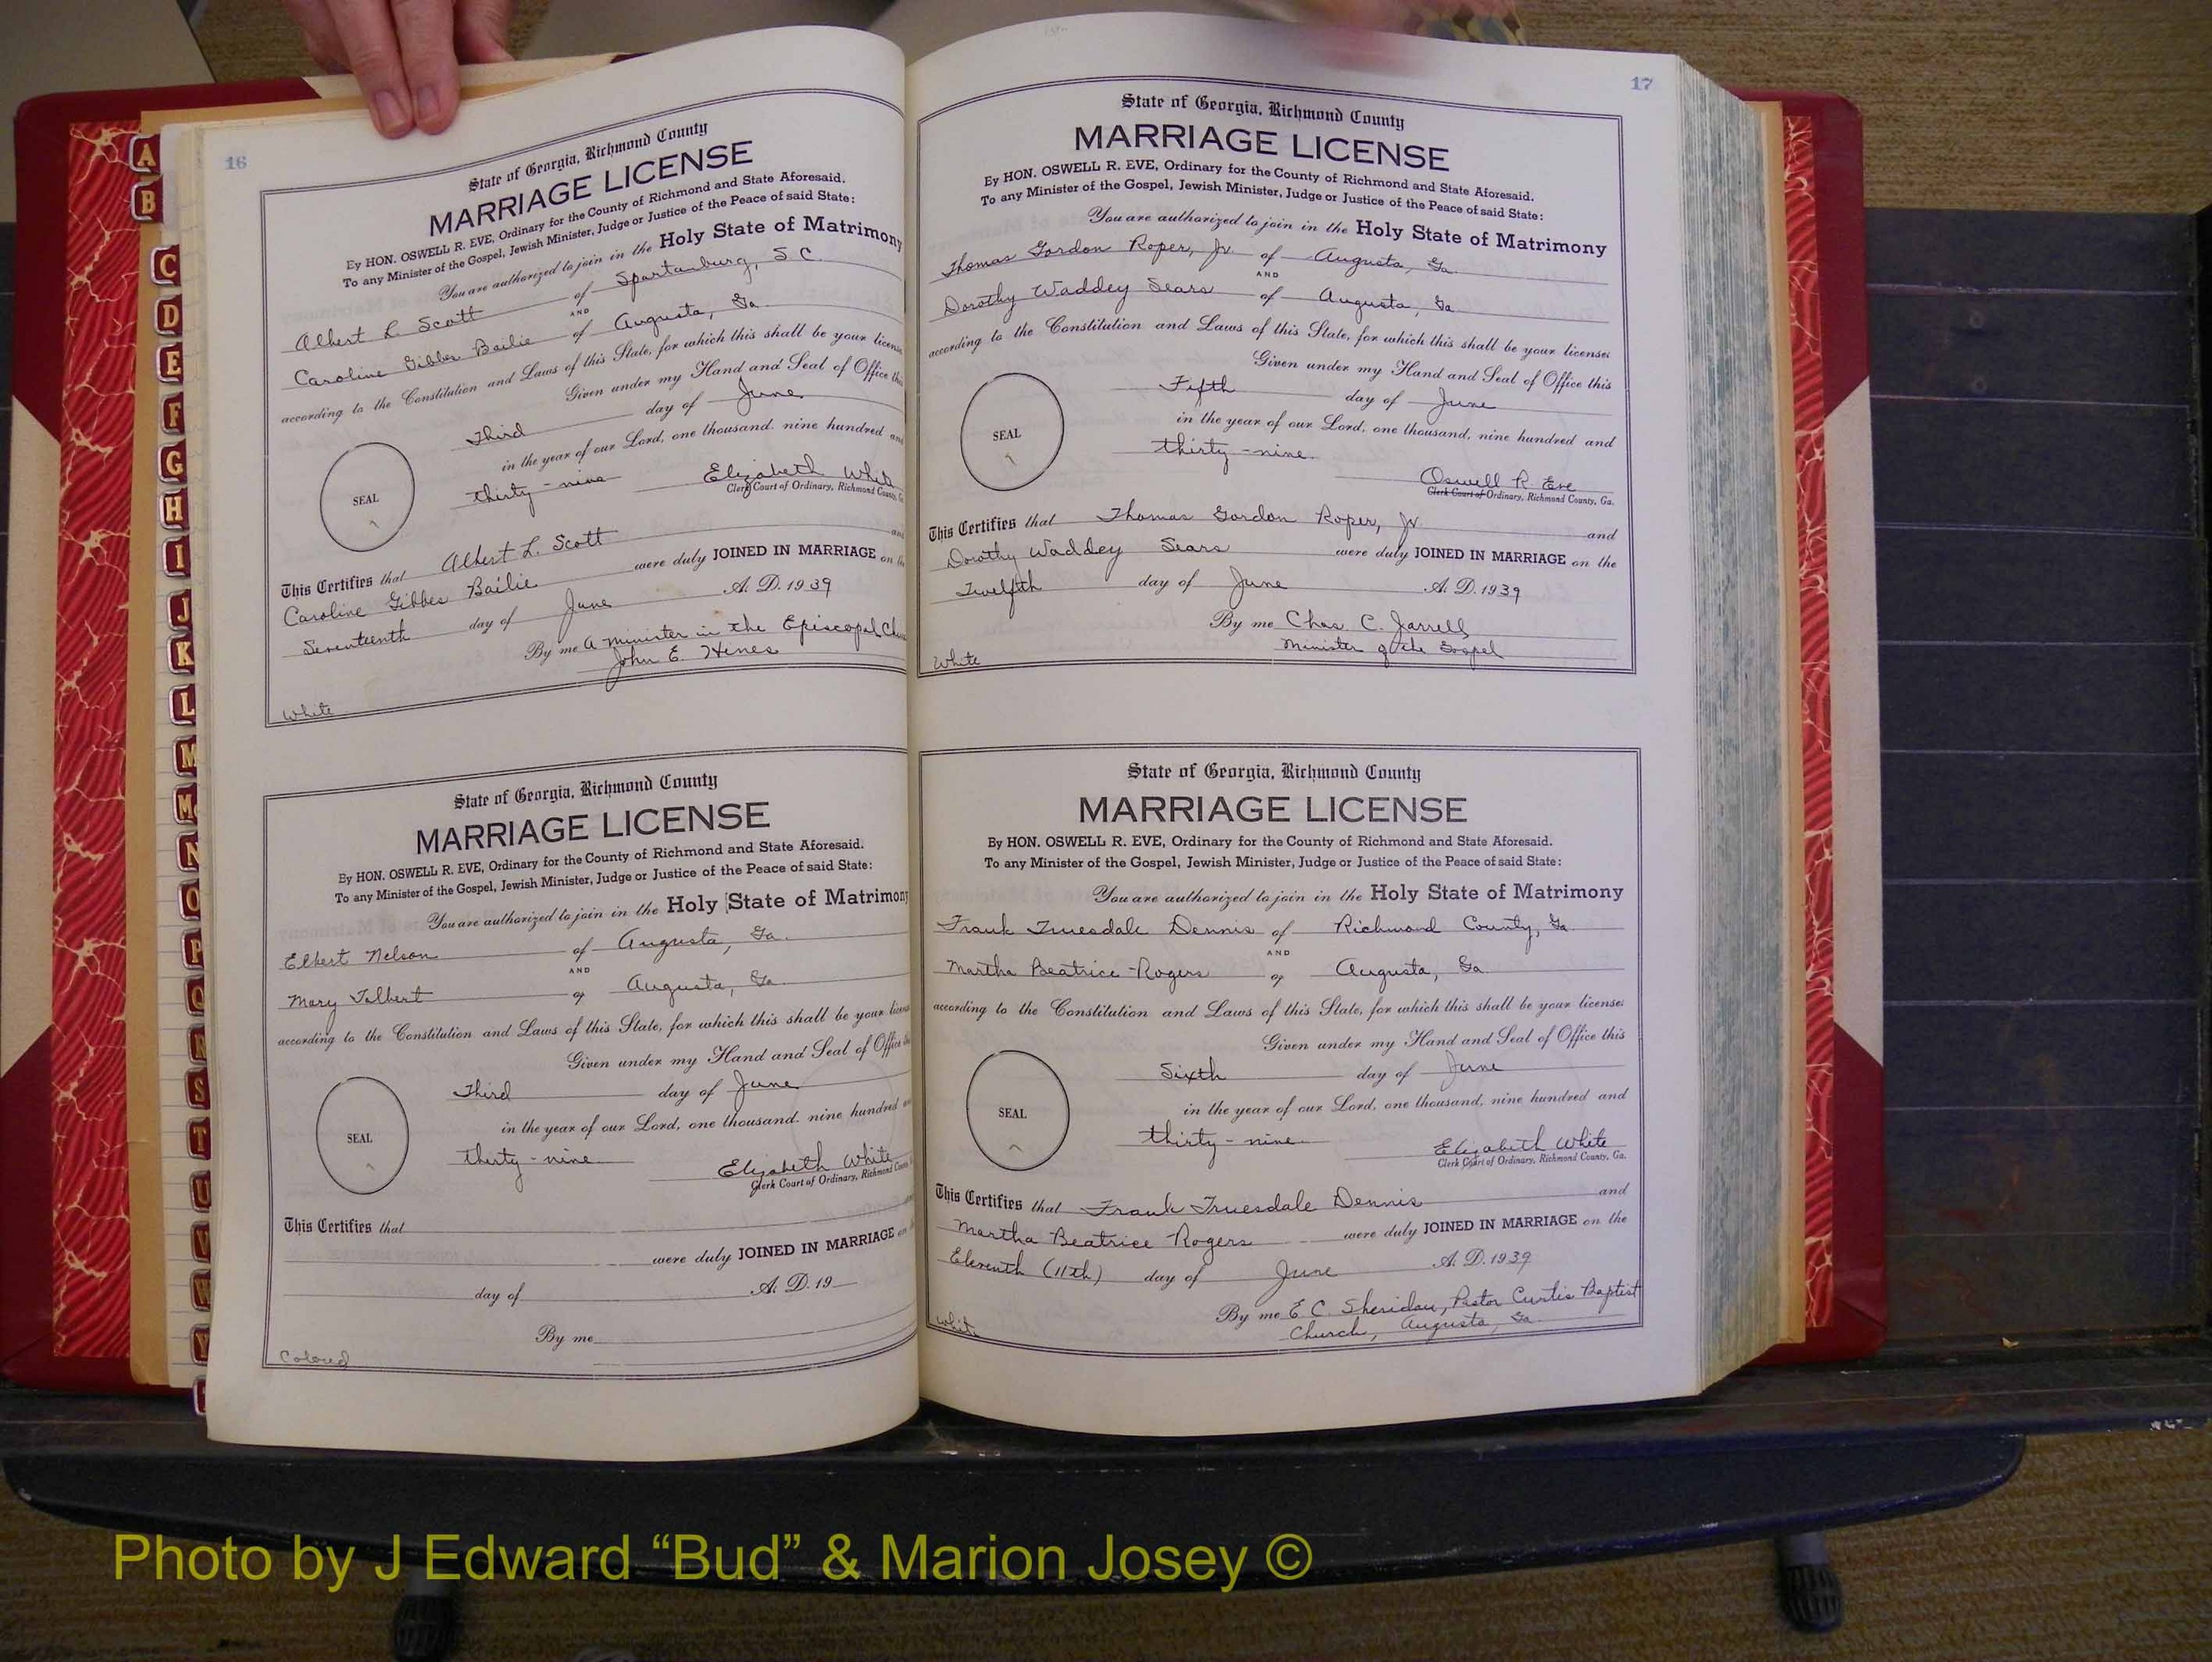 A
B
C
D
E
F
G
H
I
J
K
L
M
Mc
N
O
P
Q
R
S
T
U
V
W
Y
16
State of Georgia, Richmond County
MARRIAGE LICENSE
By HON. OSWELL R. EVE, Ordinary for the County of Richmond and State Aforesaid.
To any Minister of the Gospel, Jewish Minister, Judge or Justice of the Peace of said State:
You are authorized to join in the Holy State of Matrimony
Albert L. Scott of Spartanburg, S C.
AND
Caroline Gibbes Bailie of Augusta, Ga.
according to the Constitution and Laws of this State, for which this shall be your license
Given under my Hand and Seal of Office this
Third day of June
in the year of our Lord, one thousand, nine hundred and
SEAL
thirty-nine Elizabeth White
Clerk Court of Ordinary, Richmond County, Ga.
This Certifies that Albert L. Scott and
Caroline Gibbes Bailie were duly JOINED IN MARRIAGE on the
Seventeenth day of June A. D. 1939
By me a minister in the Episcopal
John E. Hines
White
State of Georgia, Richmond County
MARRIAGE LICENSE
By HON. OSWELL R. EVE, Ordinary for the County of Richmond and State Aforesaid.
To any Minister of the Gospel, Jewish Minister, Judge or Justice of the Peace of said State:
You are authorized to join in the Holy State of Matrimony
Elbert Nelson of Augusta, Ga.
AND
Mary Tolbert of Augusta, Ga.
according to the Constitution and Laws of this State, for which this shall be your license
Given under my Hand and Seal of Office this
Third day of June
in the year of our Lord, one thousand, nine hundred
SEAL
thirty-nine Elizabeth White
Clerk Court of Ordinary, Richmond County
This Certifies that
were duly JOINED IN MARRIAGE on
day of A. D. 19
By me
Colored
17
State of Georgia, Richmond County
MARRIAGE LICENSE
By HON. OSWELL R. EVE, Ordinary for the County of Richmond and State Aforesaid.
To any Minister of the Gospel, Jewish Minister, Judge or Justice of the Peace of said State:
You are authorized to join in the Holy State of Matrimony
Thomas Gordon Roper, Jr. of Augusta, Ga.
AND
Dorothy Waddey Sears of Augusta, Ga.
according to the Constitution and Laws of this State, for which this shall be your license:
Given under my Hand and Seal of Office this
Fifth day of June
in the year of our Lord, one thousand, nine hundred and
SEAL
thirty-nine.
Oswell R. Eve
Clerk Court of Ordinary, Richmond County, Ga.
This Certifies that Thomas Gordon Roper, Jr. and
Dorothy Waddey Sears were duly JOINED IN MARRIAGE on the
Twelfth day of June A. D. 1939
By me Chas. C. Jarrell
Minister of the Gospel
White
State of Georgia, Richmond County
MARRIAGE LICENSE
By HON. OSWELL R. EVE, Ordinary for the County of Richmond and State Aforesaid.
To any Minister of the Gospel, Jewish Minister, Judge or Justice of the Peace of said State:
You are authorized to join in the Holy State of Matrimony
Frank Truesdale Dennis of Richmond County, Ga.
AND
Martha Beatrice Rogers of Augusta, Ga.
according to the Constitution and Laws of this State, for which this shall be your license:
Given under my Hand and Seal of Office this
Sixth day of June
in the year of our Lord, one thousand, nine hundred and
SEAL
thirty-nine Elizabeth White
Clerk Court of Ordinary, Richmond County, Ga.
This Certifies that Frank Truesdale Dennis and
Martha Beatrice Rogers were duly JOINED IN MARRIAGE on the
Eleventh (11th) day of June A. D. 1939
By me E. C. Sheridan, Pastor Curtis Baptist
Church, Augusta, Ga.
White
Photo by J Edward “Bud” & Marion Josey ©